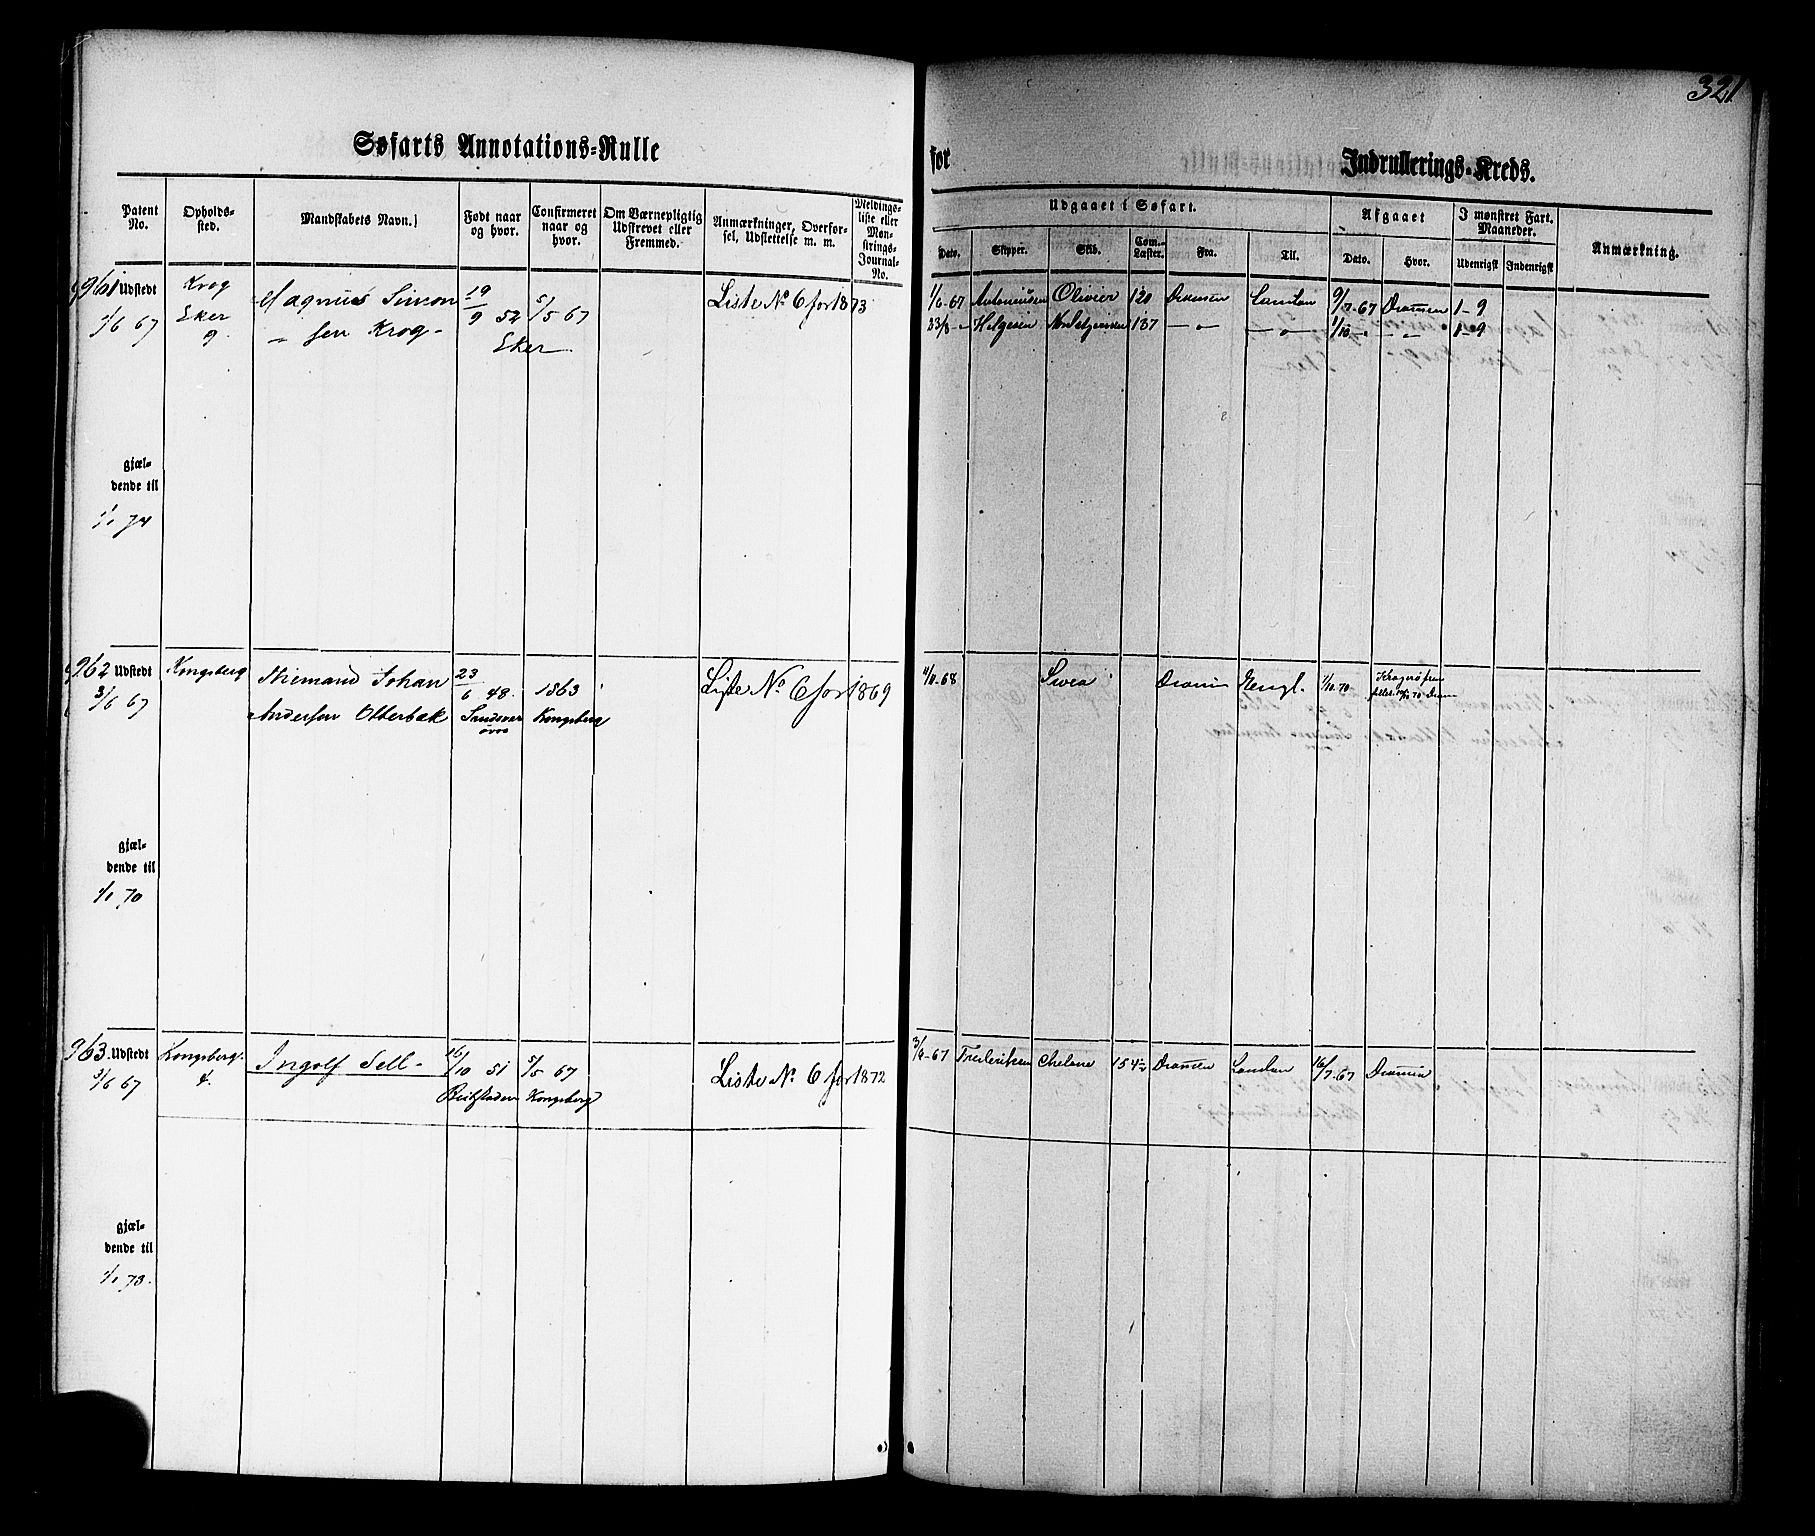 321
Søfarts Annotations-Rulle
for Indrullerings-Kreds.
Patent No.
Opholdssted.
Mandskabets Navn.
Født naar og hvor.
Confirmeret naar og hvor.
Om Værnepligtig Udskrevet eller Fremmed.
Anmærkninger, Overførsel, Udslettelse m. m.
Meldingsliste eller Mønstrings-Journal-No.
Udgaaet i Søfart.
Afgaaet
I mønstret Fart. Maaneder.
Anmærkning.
Dato. Skipper. Skib. Com.-Læster. Fra. Til. Dato. Hvor. Udenrigst Indenrigst
961 Udstedt 1/6 67
Krog Eker 9
Magnus Simon
sen Krog
19/9 52
Eker
5/5 67
Liste No 6 for 1873
1/6-67 Antoniusen Olivier 120 Dramen London 9/7-67 Dramen 1-9
23/8 - Helgesen 137 - " - - " - 1/10 - - " - 1-9
gjældende til
1/1 74
962 Udstedt 3/6 67
Kongsberg
Niemand Johan
Andersen Otterbek
23/6 48.
Sandsver
1863
Kongsberg
Liste No 6 for 1869
68 Svea Dramn Engl. 70
gjældende til
1/1 70
963. Udstedt 3/6 67
Kongsberg. 4.
Ingolf Sell
16/10 51
5/5 67
Kongsberg
Liste No. 6 for 1872
3/6-67 Frederiksen 154 Dramen London 16/7-67 Dramen
gjældende til
1/1 73.